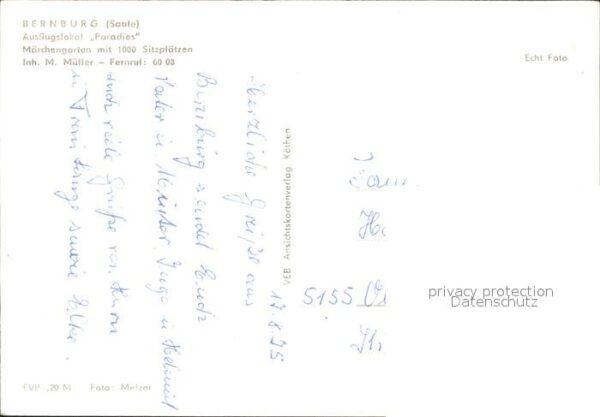 BERNBURG (Saale)
Ausflugslokal „Paradies"
Märchengarten mit 1000 Sitzplätzen
Inh. M. Müller – Fernruf: 60 08
Echt Foto
17.8.75
Herzliche Grüße aus
Bernburg sendet Euch
Vater u. Mutter. Inge u. Helmut
auch viele Grüße von
u. Frau Inge sowie Elke.
VEB Ansichtskartenverlag Köthen
5155
privacy protection
Datenschutz
EVP -,20 M Foto: Melzer